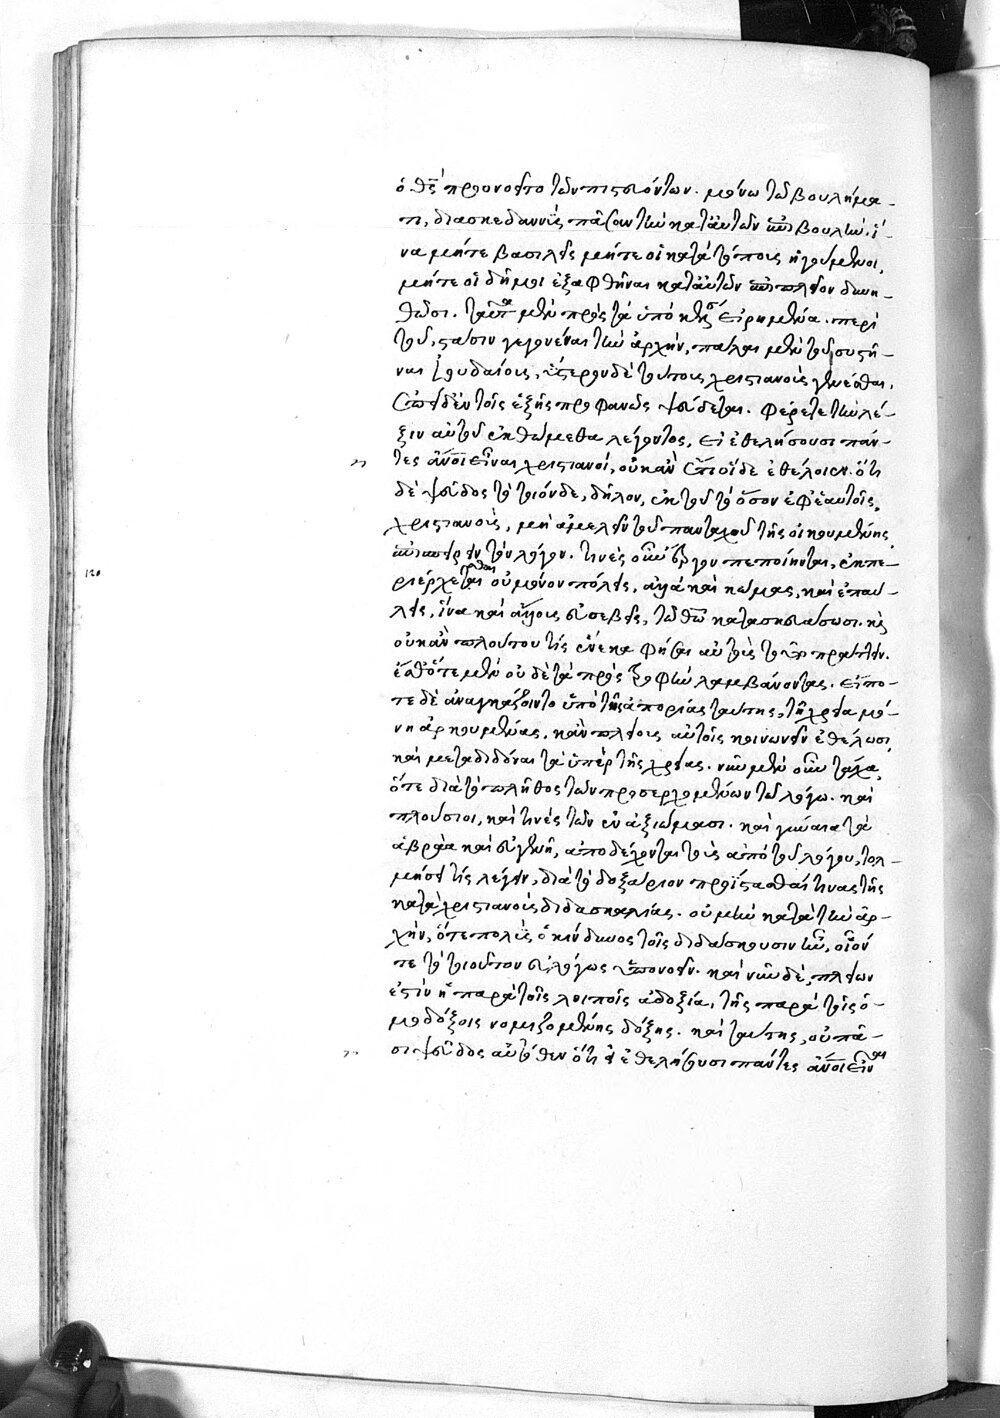 ὁ θς προυνοεῖτο τῶν πιστευόντων. μόνῳ τῷ βουλήμα-
τι, διασκεδαννὺς πᾶσαν τὴν κατ' αὐτῶν ἐπιβουλήν. ἵ-
να μήτε βασιλεῖς μήτε οἱ κατὰ τόπους ἡγούμενοι,
μήτε οἱ δῆμοι ἐξαφθῆναι κατ' αὐτῶν ἐπὶ πλεῖον δυνη-
θῶσι. ταῦτα μὲν πρὸς τὰ ὑπὸ εἰρημένα. περὶ
τοῦ, στάσιν γεγονέναι τὴν ἀρχήν, πάλαι μὲν τοῦ συστῆ-
ναι Ἰουδαίοις, ὕστερον δὲ τοῦ τοὺς χριστιανοὺς γενέσθαι,
ἐπεὶ δ' ἐν τοῖς ἑξῆς προφανῶς ψεύδεται. φέρετε τὴν λέ-
ξιν αὐτοῦ ἐκθώμεθα λέγοντος, εἰ ἐθελήσουσι πάν-
τες ἄνοι εἶναι χριστιανοί, οὐκ ἂν ἔτι οἵδε ἐθέλοιεν. ὅτι
δὲ ψεῦδος τὸ τοιόνδε, δῆλον, ἐκ τοῦ τὸ ὅσον ἐφ' ἑαυτοῖς,
χριστιανοὺς, μὴ ἀμελεῖν τοῦ πανταχοῦ τῆς οἰκουμένης,
ἐπισπείρειν τὸν λόγον. τινὲς οὖν ἔργον πεποίηνται, ἐκπε-
ριέρχεσθαι οὐ μόνον πόλεις, ἀλλὰ καὶ κώμας, καὶ ἐπαύ-
λεις, ἵνα καὶ ἄλλους εὐσεβεῖς, τῷ θῷ κατασκευάσωσι. κ
οὐκ ἂν πλούτου τίς ἕνεκα φήσαι αὐτοὺς τοῦτο πράττειν.
ἔσθ' ὅτε μὲν οὐδὲ τὰ πρὸς τροφὴν λαμβάνοντας. εἴ πο-
τε δὲ ἀναγκάζοιντο ὑπὸ τῆς ἀπορίας ταύτης, τῇ χρείᾳ μό-
νῃ ἀρκουμένους, κἂν πλείους αὐτοῖς κοινωνεῖν ἐθέλωσι,
καὶ μεταδιδόναι τὰ ὑπὲρ τῆς χρείας. νῦν μὲν οὖν τάχα,
ὅτε διὰ τὸ πλῆθος τῶν προσερχομένων τῷ λόγῳ. καὶ
πλούσιοι, καὶ τινὲς τῶν ἐν ἀξιώμασι. καὶ γύναια τὰ
ἁβρὰ καὶ εὐγενῆ, ἀποδέχονται τοὺς ἀπὸ τοῦ λόγου, τολ-
μήσει τίς λέγειν, διὰ τὸ δοξάριον προΐστασθαί τινας τῆς
κατὰ χριστιανοὺς διδασκαλίας. οὐ μὴν κατὰ τὴν ἀρ-
χὴν, ὅτε πολὺς ὁ κίνδυνος τοῖς διδάσκουσιν ἦν, οἷόν
τε τὸ τοιοῦτον εὐλόγως ὑπονοεῖν. καὶ νῦν δὲ, πλείων
ἐστὶν ἡ παρὰ τοῖς λοιποῖς ἀδοξία, τῆς παρὰ τοῖς ὁ-
μοδόξοις νομιζομένης δόξης. καὶ ταύτης, οὐ πᾶ-
σι ψεῦδος αὐτόθεν ὅτι εἰ ἐθελήσουσι πάντες ἄνοι εἶναι